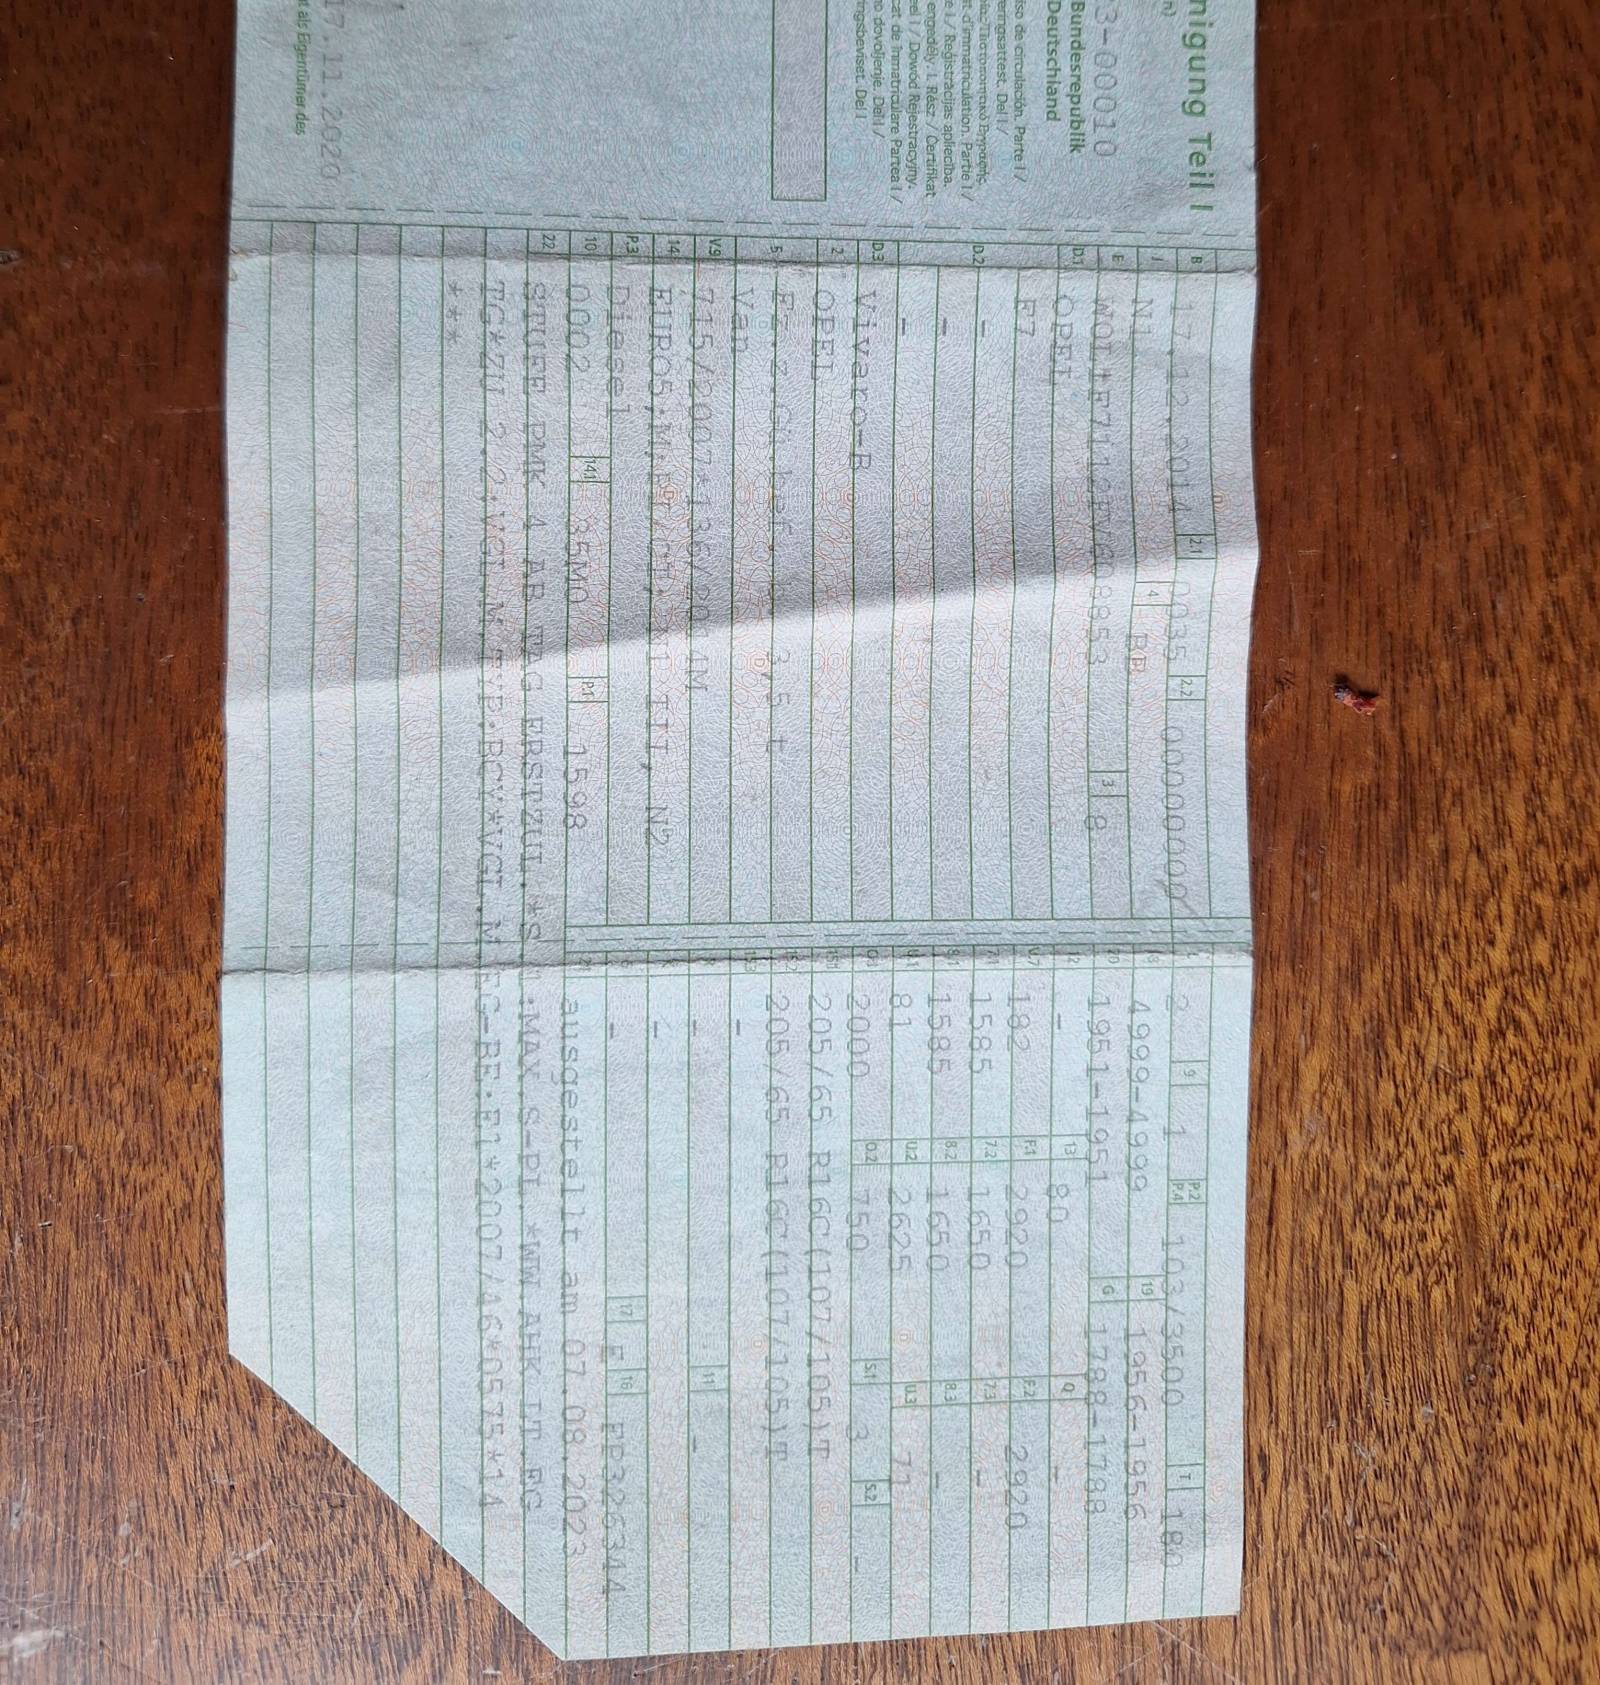 nigung Teil I
n)
3-00010
Bundesrepublik
Deutschland
iso de circulación. Parte I /
eringsattest. Del I /
t d'immatriculation. Partie I /
e I / Reģistrācijas apliecība.
engedély. I. Rész / Certifikat
eel I / Dowód Rejestracyjny.
cat de înmatriculare Partea I /
o dovoljenje. Del I /
ingsbeviset. Del I
17.11.2020
t als Eigentümer des
B 17.12.2014 2.1 0035 2.2 00000000
J N1 4 BB
E 3 8
D.1 OPEL
F7
D.2 -
-
-
D.3 Vivaro-B
2 OPEL
5 Fz.z.Gü.bef.b. 3,5 t
Van
V.9 715/2007*136/2014M
14 EURO5;M,N1/CI,N1 III, N2
P.3 Diesel
10 0002 14.1 35M0 P.1 1598
22 STUFE PMK 4 AB TAG ERSTZUL.*S.1:MAX.S-PL.*WW.AHK LT.EG
TG*ZU 2.2:VGL.M.TYP:BCY*VGL.M.EG-BE:E1*2007/46*0575*14
***
L 2 9 1 P.2 P.4 103/3500 T 180
18 4999-4999 19 1956-1956
20 1951-1951 G 1788-1788
12 - 13 80 Q -
V.7 182 F.1 2920 F.2 2920
7.1 1585 7.2 1650 7.3 -
8.1 1585 8.2 1650 8.3 -
U.1 81 U.2 2625 U.3 71
O.1 2000 O.2 750 S.1 3 S.2 -
15.1 205/65 R16C(107/105)T
15.2 205/65 R16C(107/105)T
15.3 -
R - 11 -
K -
6 - 17 E 16 FP326344
21 ausgestellt am 07.08.2023